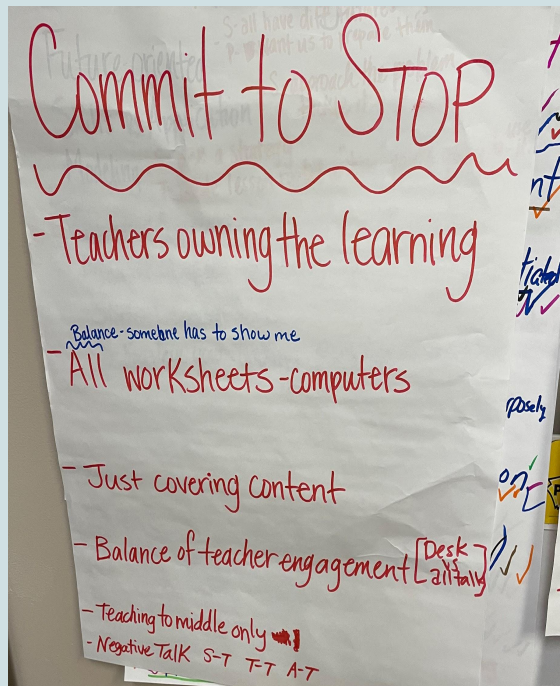 Commit to STOP
- Teachers owning the learning
Balance - someone has to show me
- All worksheets - computers
- Just covering content
- Balance of teacher engagement [Desk vs all talk]
- Teaching to middle only
- Negative Talk S-T T-T A-T
posely
on